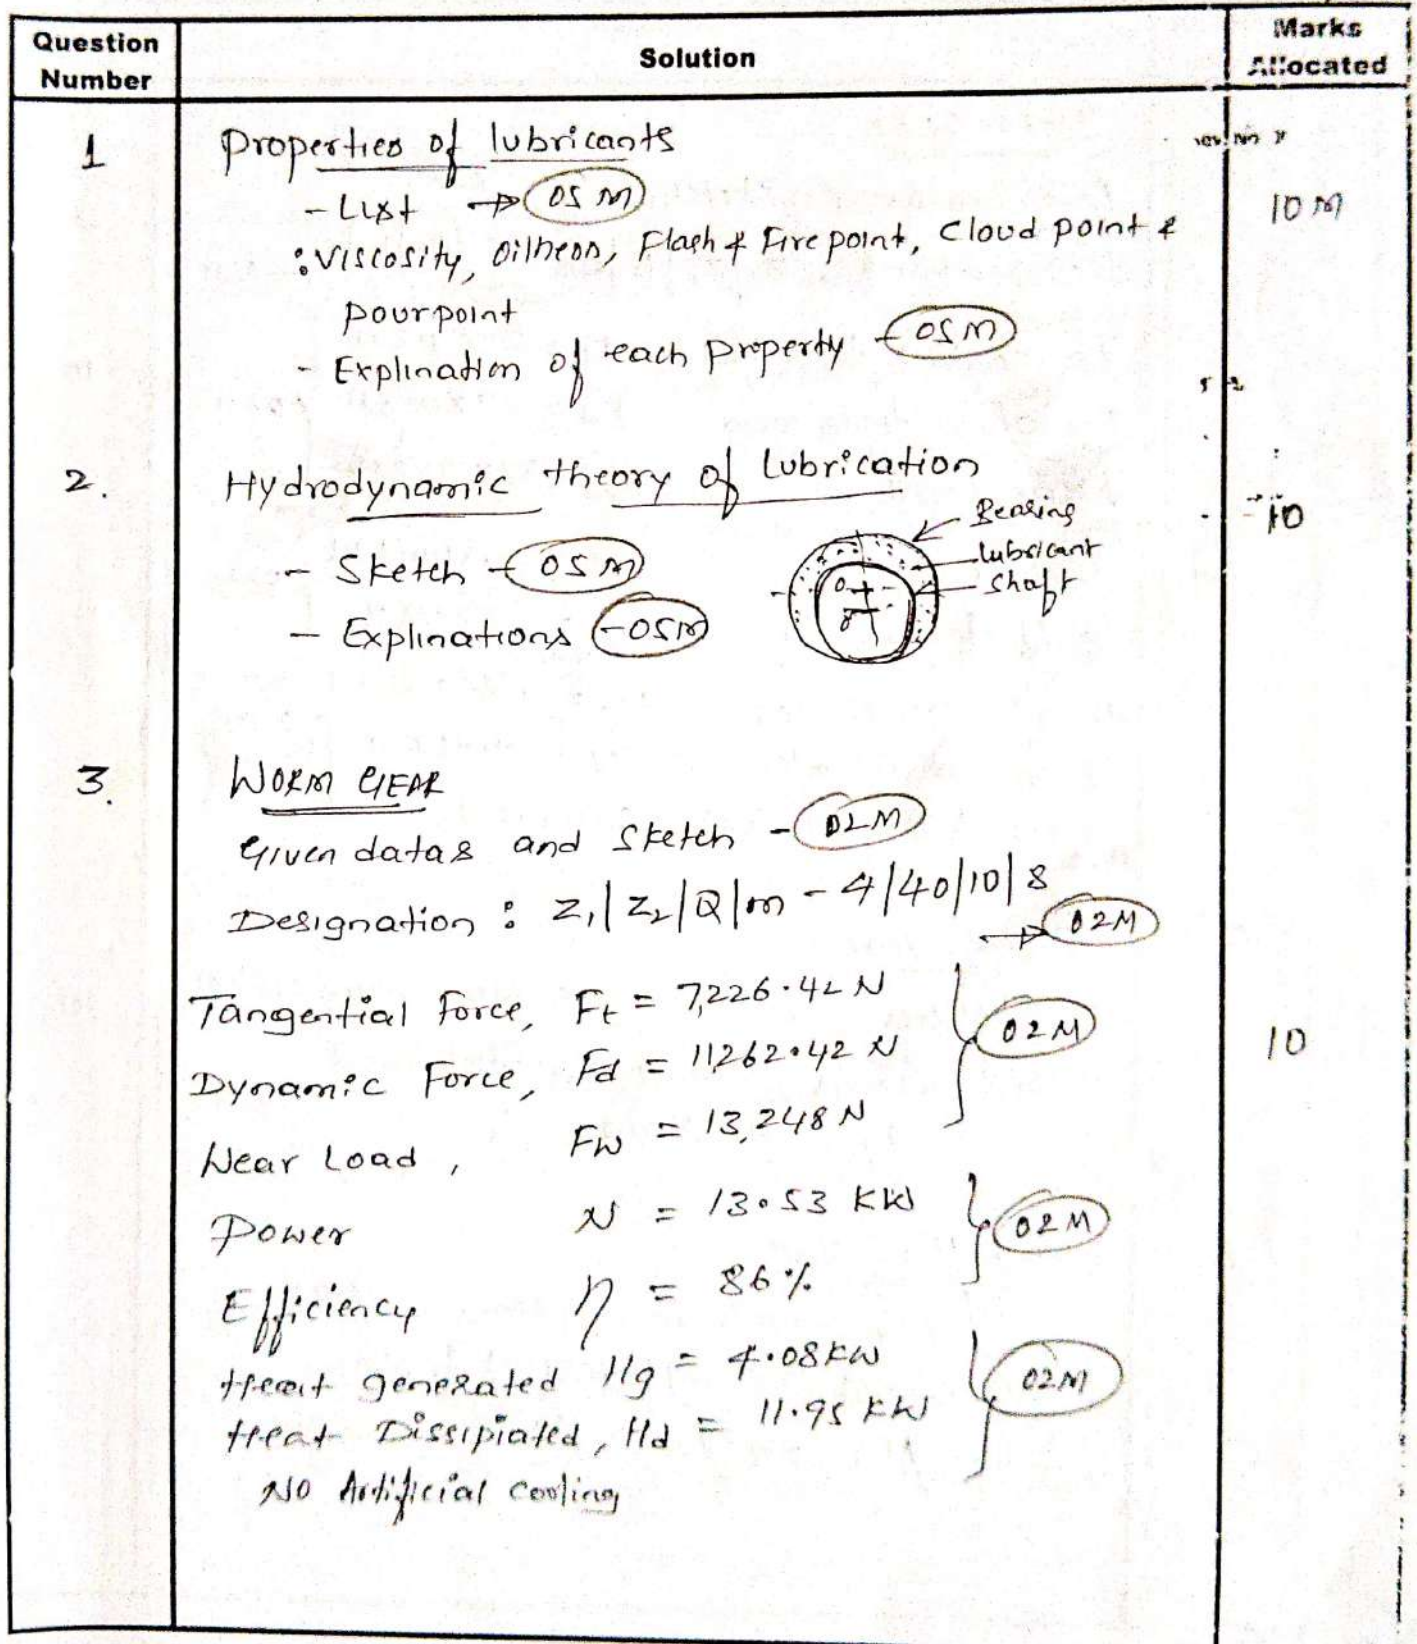 Question Number
Solution
Marks Allocated
1
Properties of lubricants
- List → 05 M
10 M
: Viscosity, Oilness, Flash & Fire point, Cloud point &
pour point
- Explination of each property - 05 M
2.
Hydrodynamic theory of Lubrication
10
Bearing
Lubricant
Shaft
- Sketch - 05 M
- Explinations - 05 M
3.
WORM GEAR
Given datas and Sketch - 02 M
Designation : Z1|Z2|Q|m - 4|40|10|8
→ 02 M
Tangential Force, Ft = 7,226.42 N
02 M
10
Dynamic Force, Fd = 11,262.42 N
Wear Load, Fw = 13,248 N
Power N = 13.53 KW
02 M
Efficiency η = 86 %
Heat generated Hg = 4.08 KW
02 M
Heat Dissipiated, Hd = 11.95 KW
NO Artificial cooling